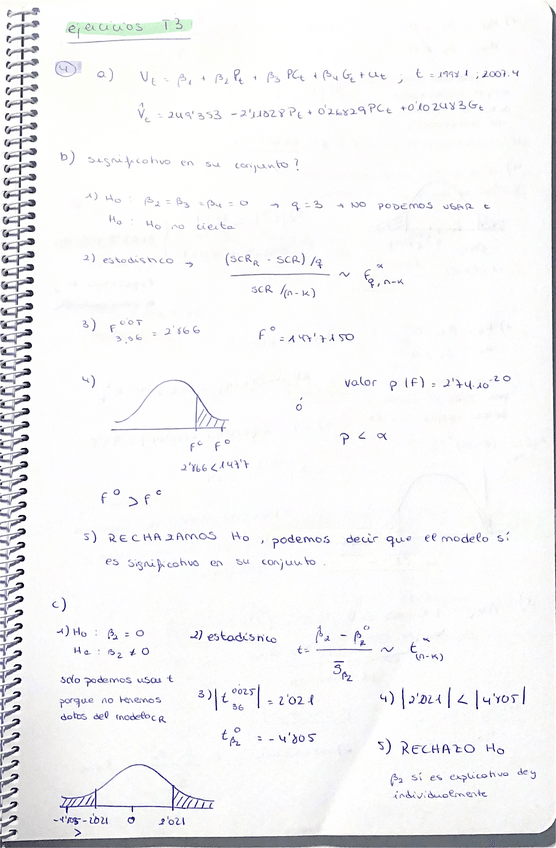 ejercicios T3
4 a) Vt = β1 + β2Pt + β3 PCt + β4Gt + ut ; t = 1998.1 ; 2007.4
V̂t = 249'353 - 2'11028Pt + 0'26829PCt + 0'102483Gt
b) significativo en su conjunto?
1) H0 : β2 = β3 = β4 = 0 → q = 3 → NO PODEMOS USAR t
Ha : H0 no cierta
2) estadístico → (SCR_R - SCR)/q / SCR/(n-k) ~ F^α q, n-k
3) F^0'05 3,36 = 2'866 F^0 = 147'7150
4) ó valor p (F) = 2'74·10^-20
p < α
F^c F^0
2'866 < 147'7
F^0 > F^c
5) RECHAZAMOS H0, podemos decir que el modelo sí
es significativo en su conjunto.
c)
1) H0 : β2 = 0
Ha : β2 ≠ 0
solo podemos usar t
porque no tenemos
datos del modelo CR
2) estadístico t = β̂2 - β2^0 / S̄β2 ~ t^α (n-k)
3) |t^0'025 36| = 2'021
t^0 β2 = -4'805
4) |2'021| < |-4'805|
5) RECHAZO H0
β2 sí es explicativa de y
individualmente
-2'021 0 2'021